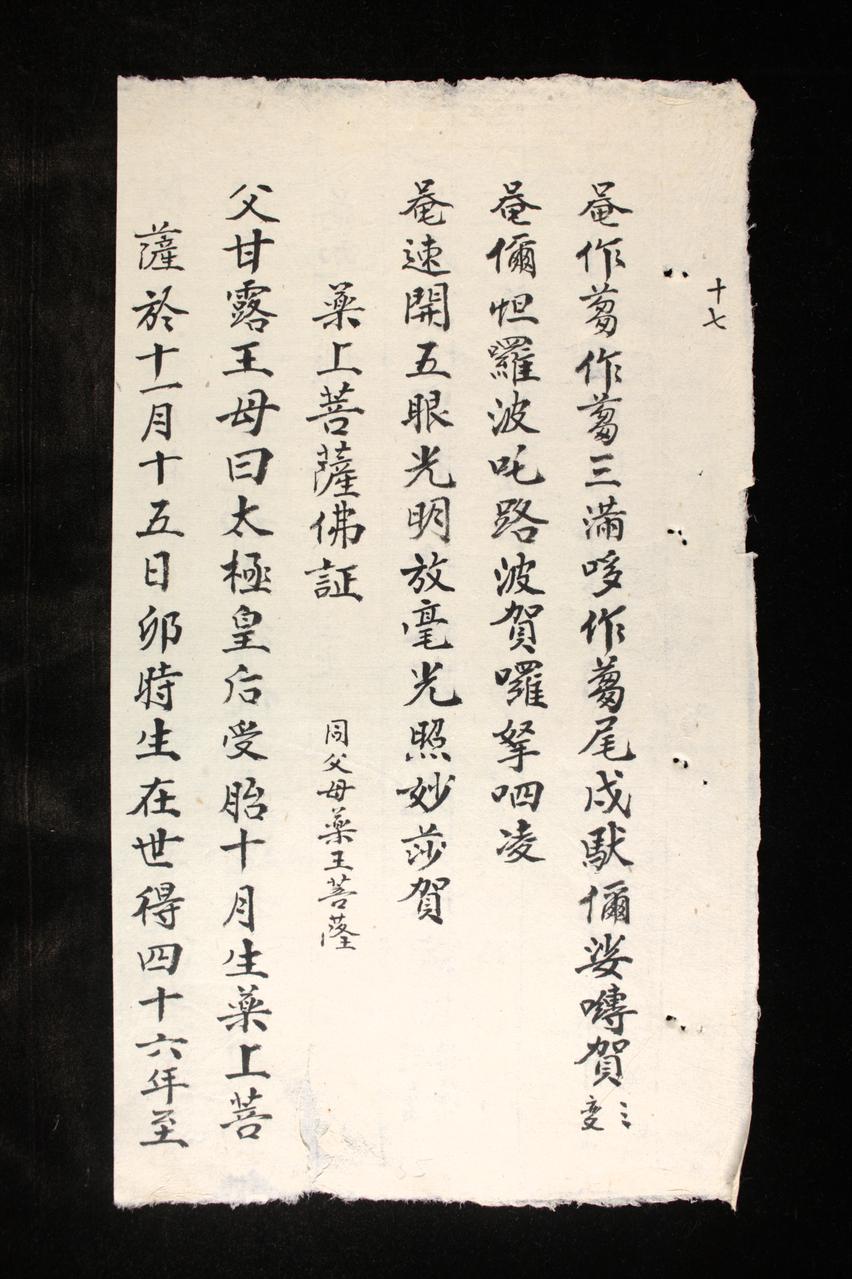 十七
唵作蒭作蒭三滿哆作蒭尾戍馱儞娑嚩賀 三变
唵儞怛羅波吒路波賀囉拏呬凌
唵速開五眼光明放毫光照妙莎賀
藥上菩薩佛証 同父母藥王菩薩
父甘露王母曰太極皇后受胎十月生藥上菩
薩於十一月十五日卯時生在世得四十六年至